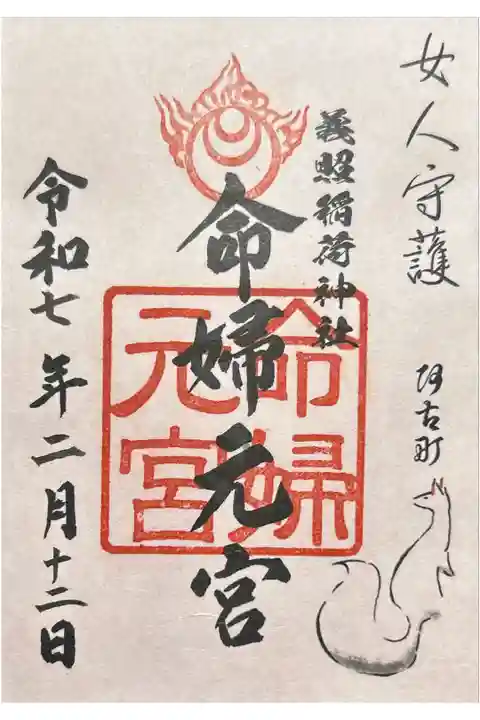 女人守護
阿古町
義照稲荷神社
命婦元宮
命婦
元宮
令和七年二月十二日